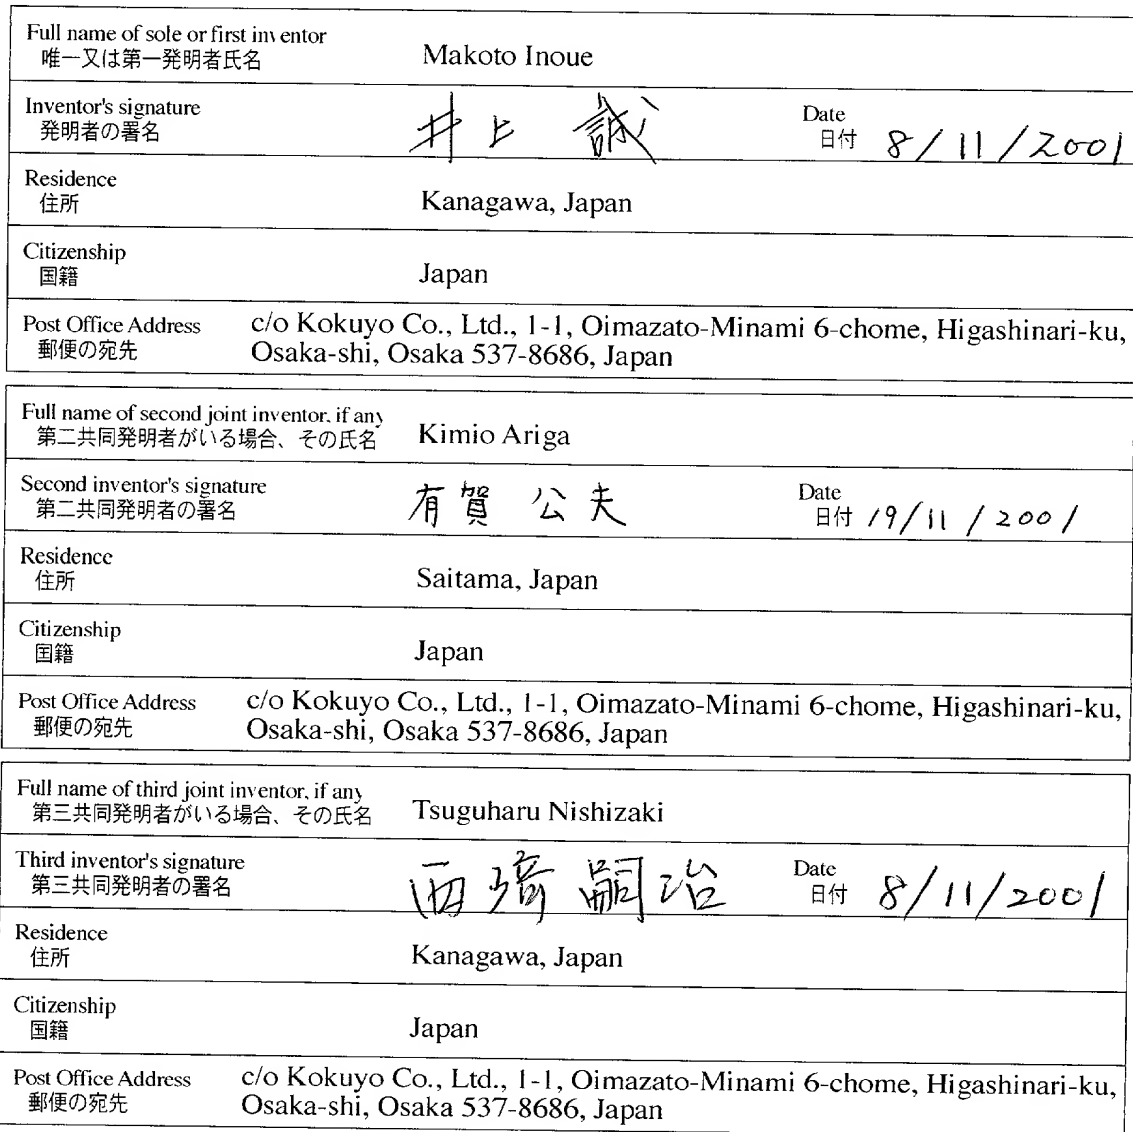 Full name of sole or first inventor
唯一又は第一発明者氏名 Makoto Inoue
Inventor's signature
発明者の署名 井上 誠 Date 日付 8/11/2001
Residence
住所 Kanagawa, Japan
Citizenship
国籍 Japan
Post Office Address c/o Kokuyo Co., Ltd., 1-1, Oimazato-Minami 6-chome, Higashinari-ku,
郵便の宛先 Osaka-shi, Osaka 537-8686, Japan
Full name of second joint inventor, if any
第二共同発明者がいる場合、その氏名 Kimio Ariga
Second inventor's signature
第二共同発明者の署名 有賀 公夫 Date 日付 19/11/2001
Residence
住所 Saitama, Japan
Citizenship
国籍 Japan
Post Office Address c/o Kokuyo Co., Ltd., 1-1, Oimazato-Minami 6-chome, Higashinari-ku,
郵便の宛先 Osaka-shi, Osaka 537-8686, Japan
Full name of third joint inventor, if any
第三共同発明者がいる場合、その氏名 Tsuguharu Nishizaki
Third inventor's signature
第三共同発明者の署名 西埼 嗣治 Date 日付 8/11/2001
Residence
住所 Kanagawa, Japan
Citizenship
国籍 Japan
Post Office Address c/o Kokuyo Co., Ltd., 1-1, Oimazato-Minami 6-chome, Higashinari-ku,
郵便の宛先 Osaka-shi, Osaka 537-8686, Japan